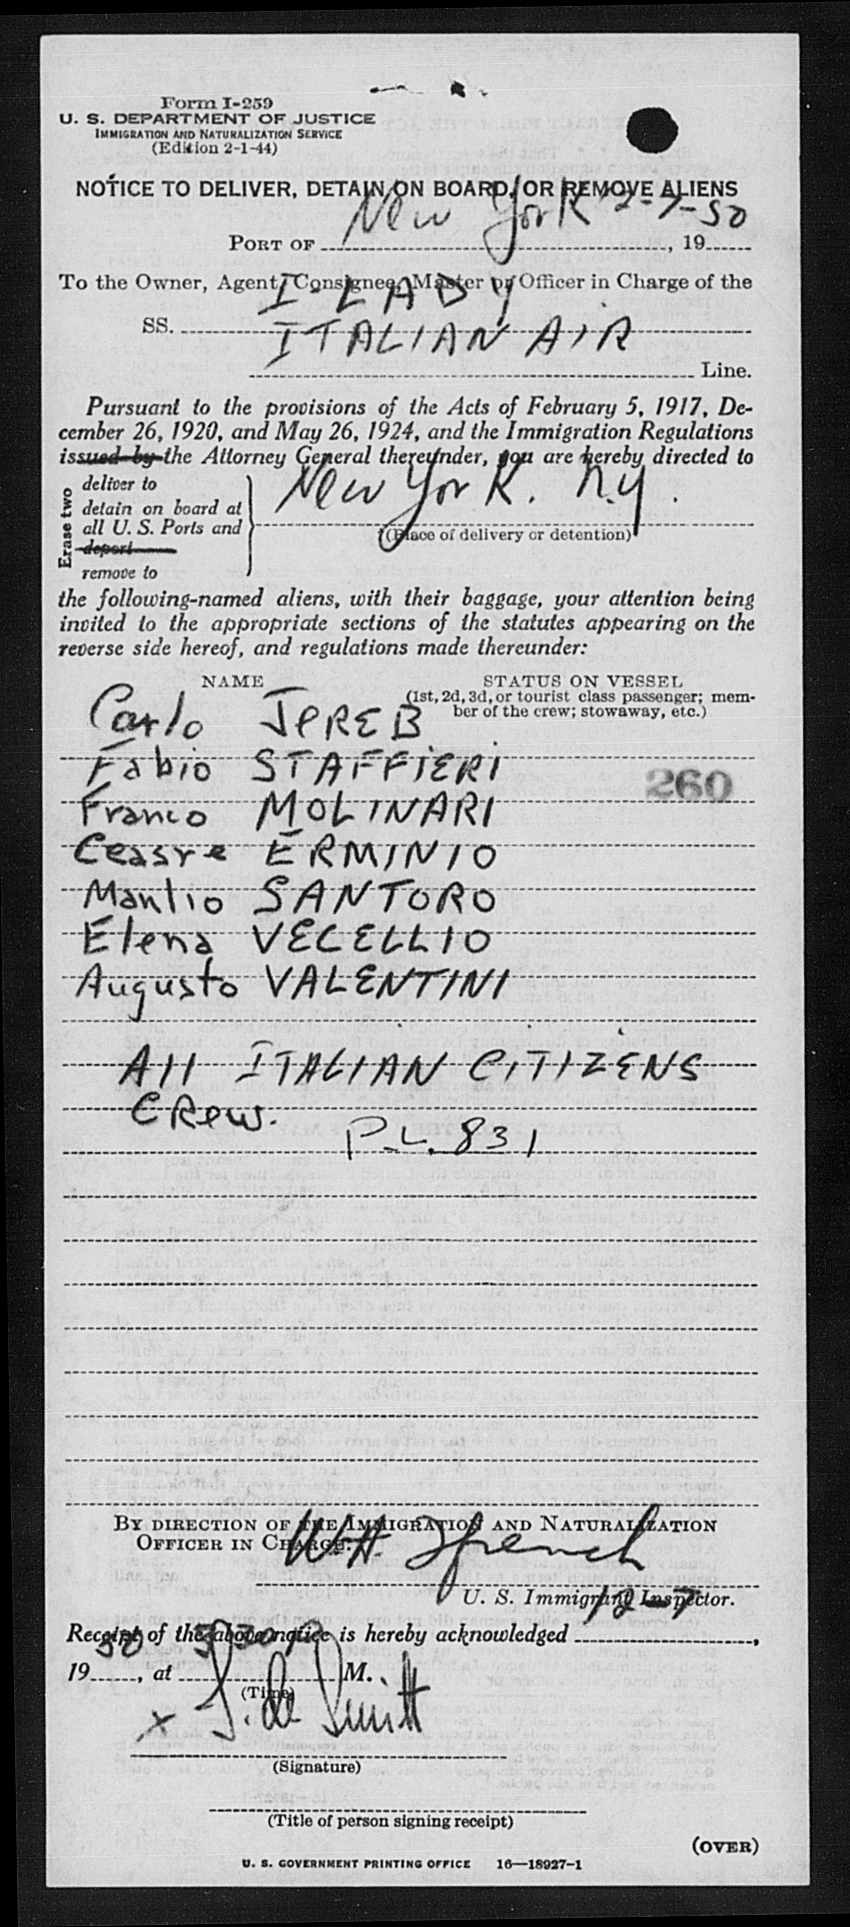 Form I-259
U. S. DEPARTMENT OF JUSTICE
IMMIGRATION AND NATURALIZATION SERVICE
(Edition 2-1-44)
NOTICE TO DELIVER, DETAIN ON BOARD, OR REMOVE ALIENS
PORT OF New York 12-7-50, 19
To the Owner, Agent, Consignee, Master or Officer in Charge of the
SS. I-LADY
ITALIAN AIR Line.
Pursuant to the provisions of the Acts of February 5, 1917, De-
cember 26, 1920, and May 26, 1924, and the Immigration Regulations
issued by the Attorney General thereunder, you are hereby directed to
Erase two
deliver to
detain on board at
all U. S. Ports and
deport
remove to
New York. N.Y.
(Place of delivery or detention)
the following-named aliens, with their baggage, your attention being
invited to the appropriate sections of the statutes appearing on the
reverse side hereof, and regulations made thereunder:
NAME STATUS ON VESSEL
(1st, 2d, 3d, or tourist class passenger; mem-
ber of the crew; stowaway, etc.)
Carlo JEREB
Fabio STAFFIERI
260
Franco MOLINARI
Ceasre ERMINIO
Manlio SANTORO
Elena VECELLIO
Augusto VALENTINI
All ITALIAN CITIZENS
CRew.
P.L. 831
BY DIRECTION OF THE IMMIGRATION AND NATURALIZATION
OFFICER IN CHARGE:
W.H. French
U. S. Immigrant Inspector.
Receipt of the above notice is hereby acknowledged 12-7,
1950, at 5:30 P M.
(Time)
x
(Signature)
(Title of person signing receipt)
(OVER)
U. S. GOVERNMENT PRINTING OFFICE 16—18927-1